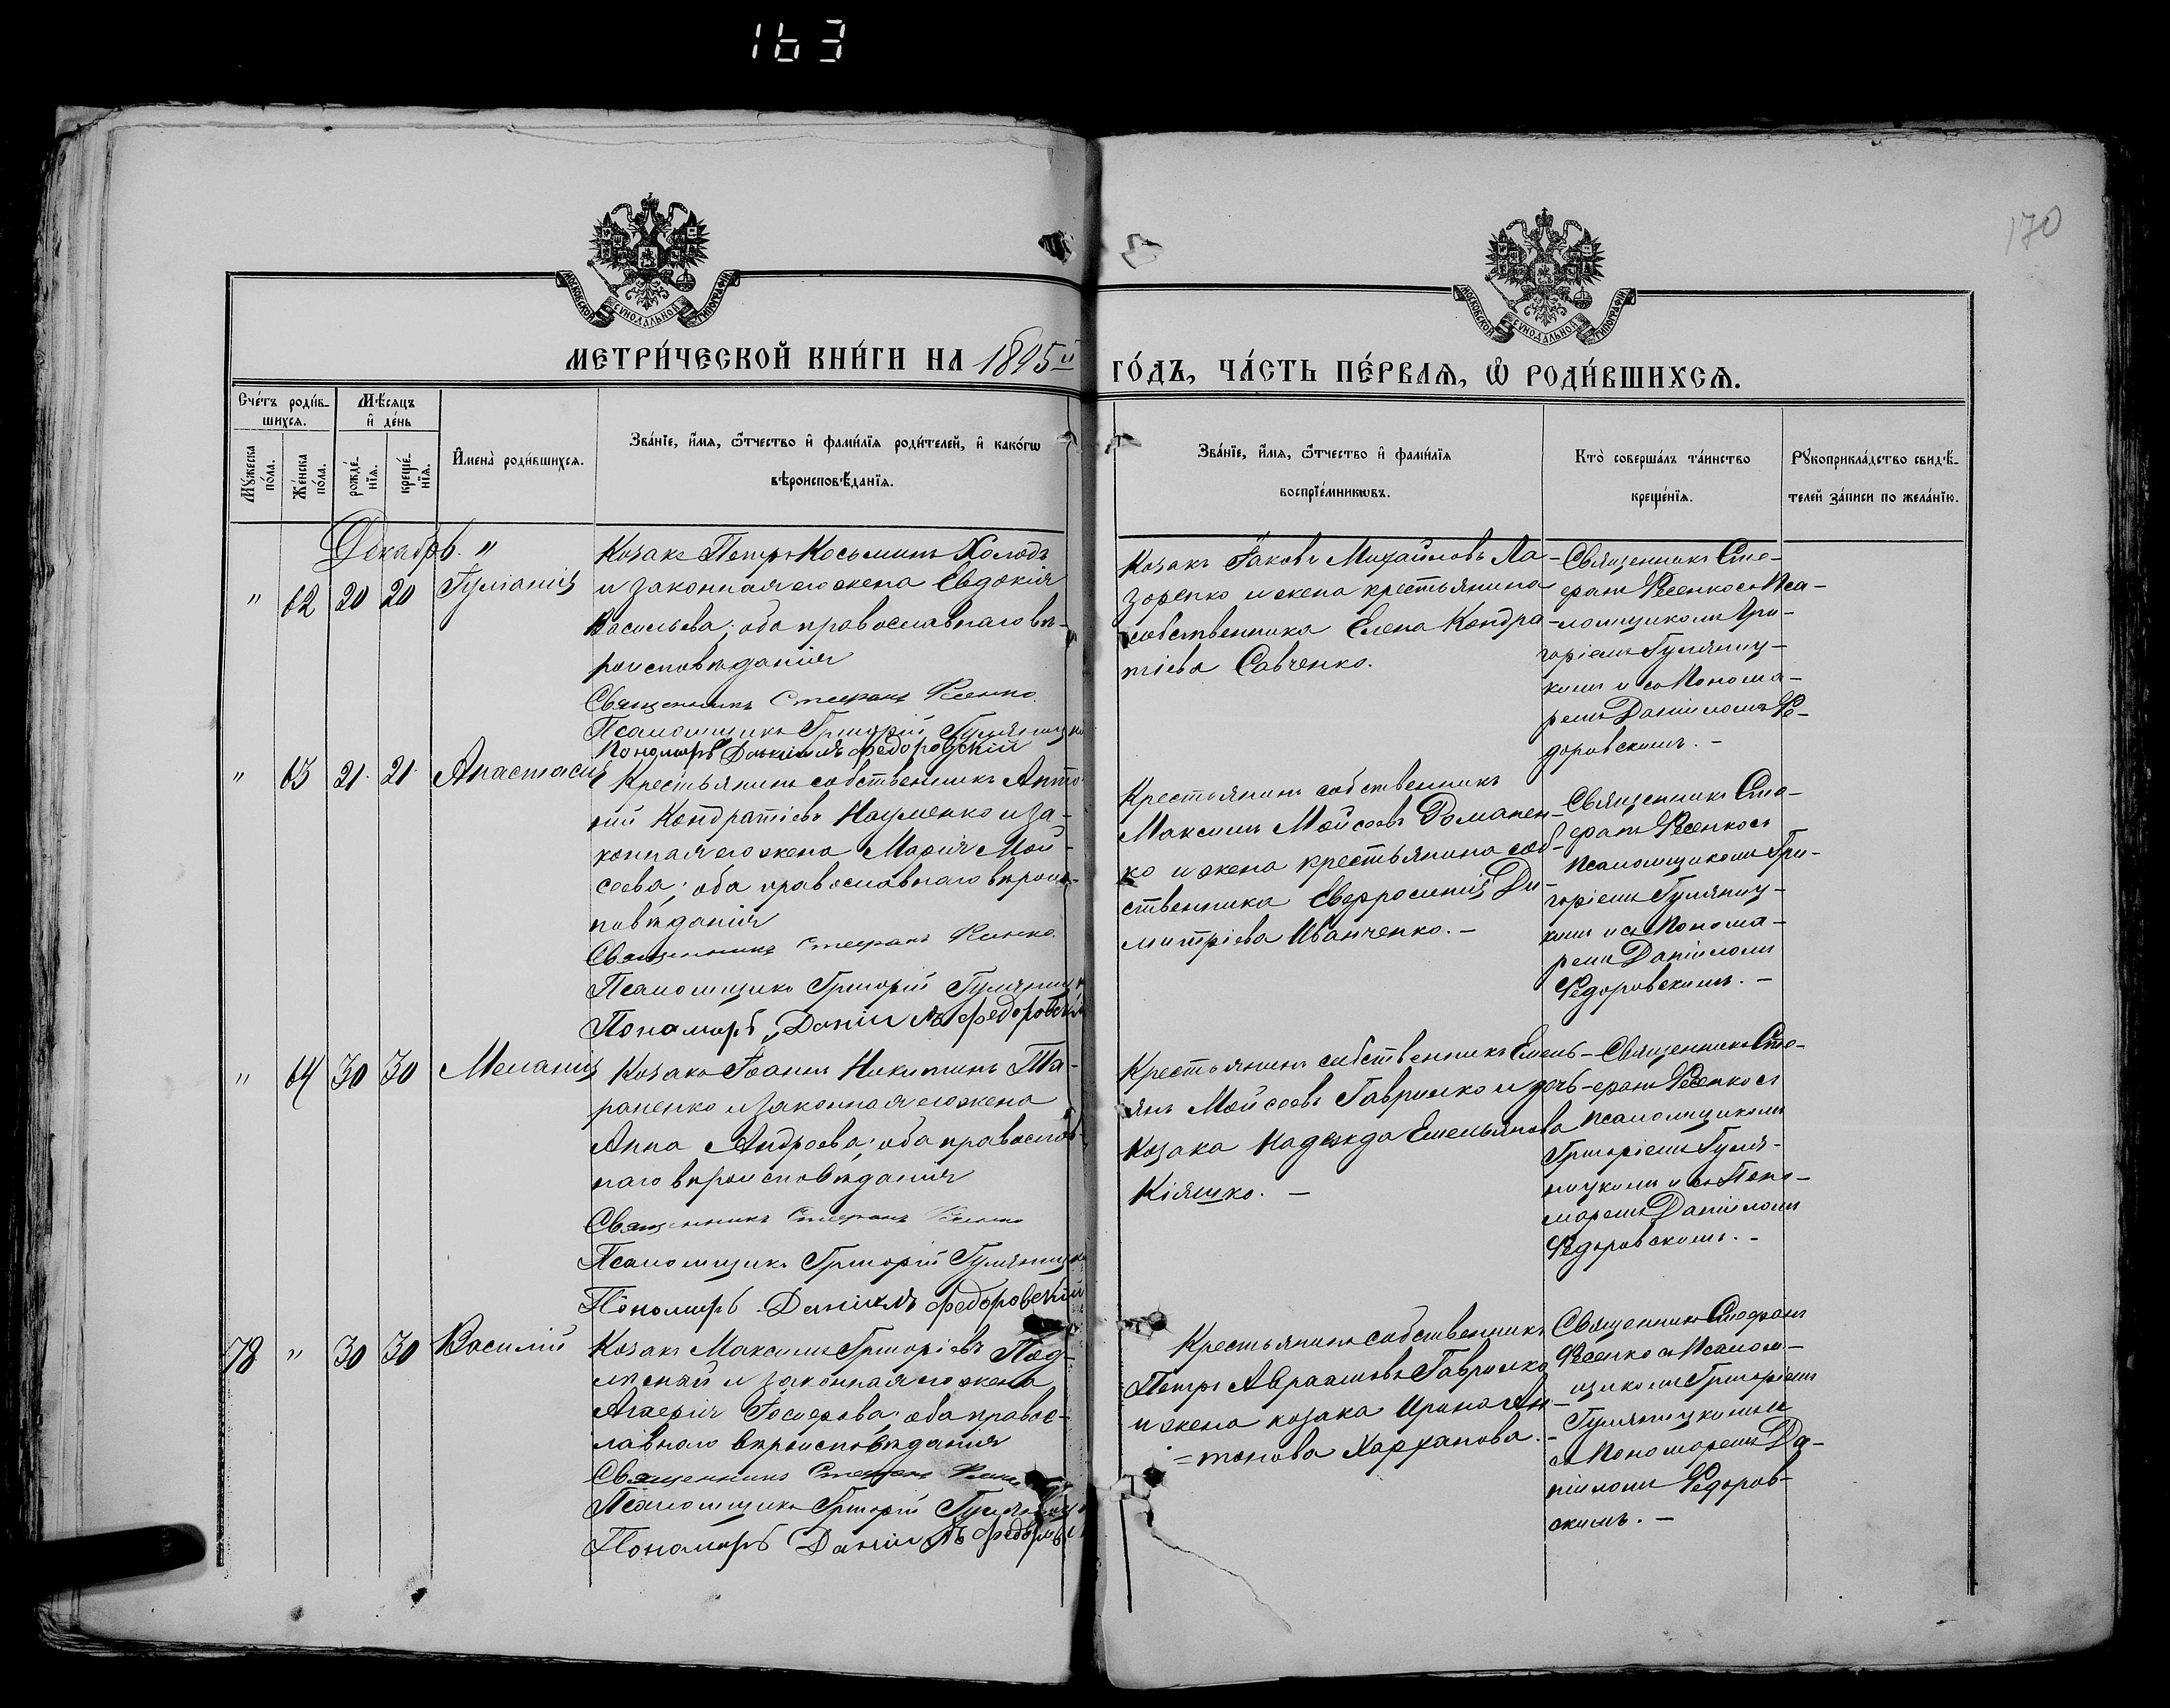 163
170
МОСКОВСКОЙ СѴНОДАЛЬНОЙ ТИПОГРАФІИ
МОСКОВСКОЙ СѴНОДАЛЬНОЙ ТИПОГРАФІИ
МЕТРИ́ЧЕСКОЙ КНИ́ГИ НА 1895й ГО́ДЪ, ЧА́СТЬ ПЕ́РВАѦ, Ѽ РОДИ́ВШИХСѦ.
Сче́тъ роди́в-
шихсѧ.
Мѣ́сѧцъ
и҆ де́нь
Мꙋ́жеска
по́ла.
Же́нска
по́ла.
рожде́-
нїѧ.
креще́-
нїѧ.
И҆мена̀ роди́вшихсѧ.
Зва́нїе, и҆́мѧ, ѻ҆́тчество и҆ фами́лїѧ роди́телей, и҆ како́гѡ
вѣроисповѣ́данїѧ.
Зва́нїе, и҆́мѧ, ѻ҆́тчество и҆ фами́лїѧ
воспрїе́мникѡвъ.
Кто̀ соверша́лъ та́инство
креще́нїѧ.
Рꙋкоприкла́дство свидѣ́-
телей за́писи по жела́нїю.
Декабрь. "
" 62 20 20 Іуліанія
Козакъ Петръ Косьминъ Холодъ
и законная его жена Евдокія
Васильева; оба православнаго вѣ-
роисповѣданія
Священникъ Стефанъ Фесенко
Псаломщикъ Григорій Гуляницк
Пономарь Даніилъ Федоровскій
Козакъ Іаковъ Михайловъ Ла-
зоренко и жена крестьянина
собственника Елена Кондра-
тіева Савченко.
Священникъ Сте-
фанъ Фесенко съ Пса-
ломщикомъ Гри-
горіемъ Гуляниц-
кимъ и съ Понома-
ремъ Даніиломъ Фе-
доровскимъ. -
" 63 21. 21. Анастасія
Крестьянинъ собственникъ Анто-
ній Кондратіевъ Науменко и за-
конная его жена Марія Мои-
сеева; оба православнаго вѣроис-
повѣданія
Священникъ Стефанъ Фесенко.
Псаломщикъ Григорій Гуляницк
Пономарь Даніилъ Федоровскій
Крестьянинъ собственникъ
Максимъ Мойсеевъ Романен-
ко и жена крестьянина соб-
ственника Евфросинія Ди-
митріева Иванченко. -
Священникъ Сте-
фанъ Фесенко съ
Псаломщикомъ Гри-
горіемъ Гуляниц-
кимъ и съ Понома-
ремъ Даніиломъ
Федоровскимъ. -
" 64 30 30 Меланія
Козакъ Іоаннъ Никитинъ Та-
раненко и законная его жена
Анна Андреева; оба православ-
наго вѣроисповѣданія
Священникъ Стефанъ Фесенко
Псаломщикъ Григорій Гуляницк
Пономарь Даніилъ Федоровскій
Крестьянинъ собственникъ Емель-
янъ Мойсеевъ Гаврилко и дочь
Козака Надежда Емельянова
Кіяшко. -
Священникъ Сте-
фанъ Фесенко съ
Псаломщикомъ
Григоріемъ Гуля-
ницкимъ и съ Поно-
маремъ Даніиломъ
Федоровскимъ. -
78 " 30 30 Василій
Козакъ Максимъ Григоріевъ Под-
и законная его жена
Агафія Іосифова; оба правос-
лавнаго вѣроисповѣданія
Священникъ Стефанъ Фесенко
Псаломщикъ Григорій Гуляницк
Пономарь Даніилъ Федоровск
Крестьянинъ собственникъ
Петръ Авраамовъ Гаврилко
и жена козака Ирина Ан-
=тонова Харханова. -
Священникъ Стефанъ
Фесенко съ Псалом-
щикомъ Григоріемъ
Гуляницкимъ и
съ Пономаремъ Да-
ніиломъ Федоров-
скимъ. -